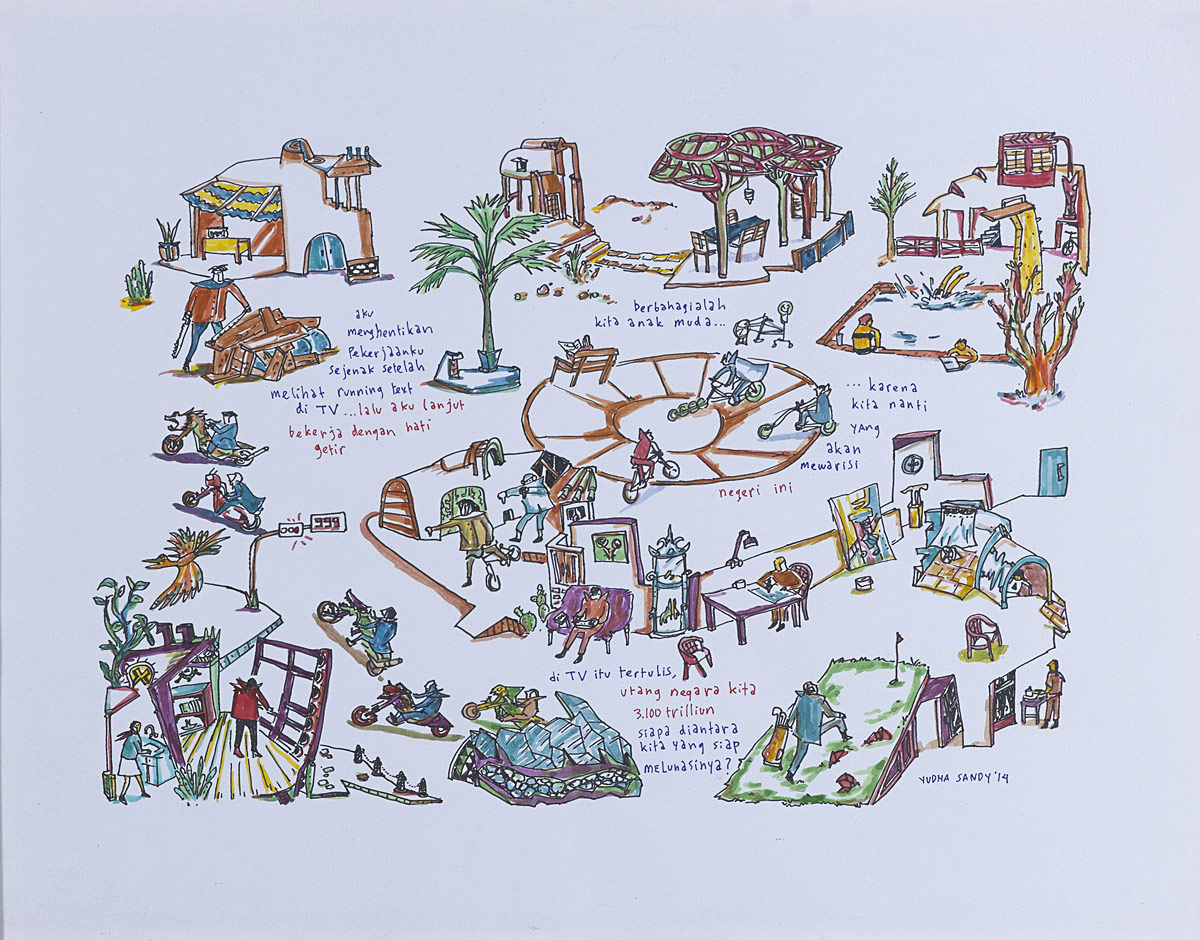 aku
menghentikan
pekerjaanku
sejenak setelah
melihat running text
di TV ...lalu aku lanjut
bekerja dengan hati
getir
berbahagialah
kita anak muda...
... karena
kita nanti
yang
akan
mewarisi
negeri ini
999
di TV itu tertulis,
utang negara kita
3.100 trilliun
siapa diantara
kita yang siap
melunasinya?
YUDHA SANDY '14